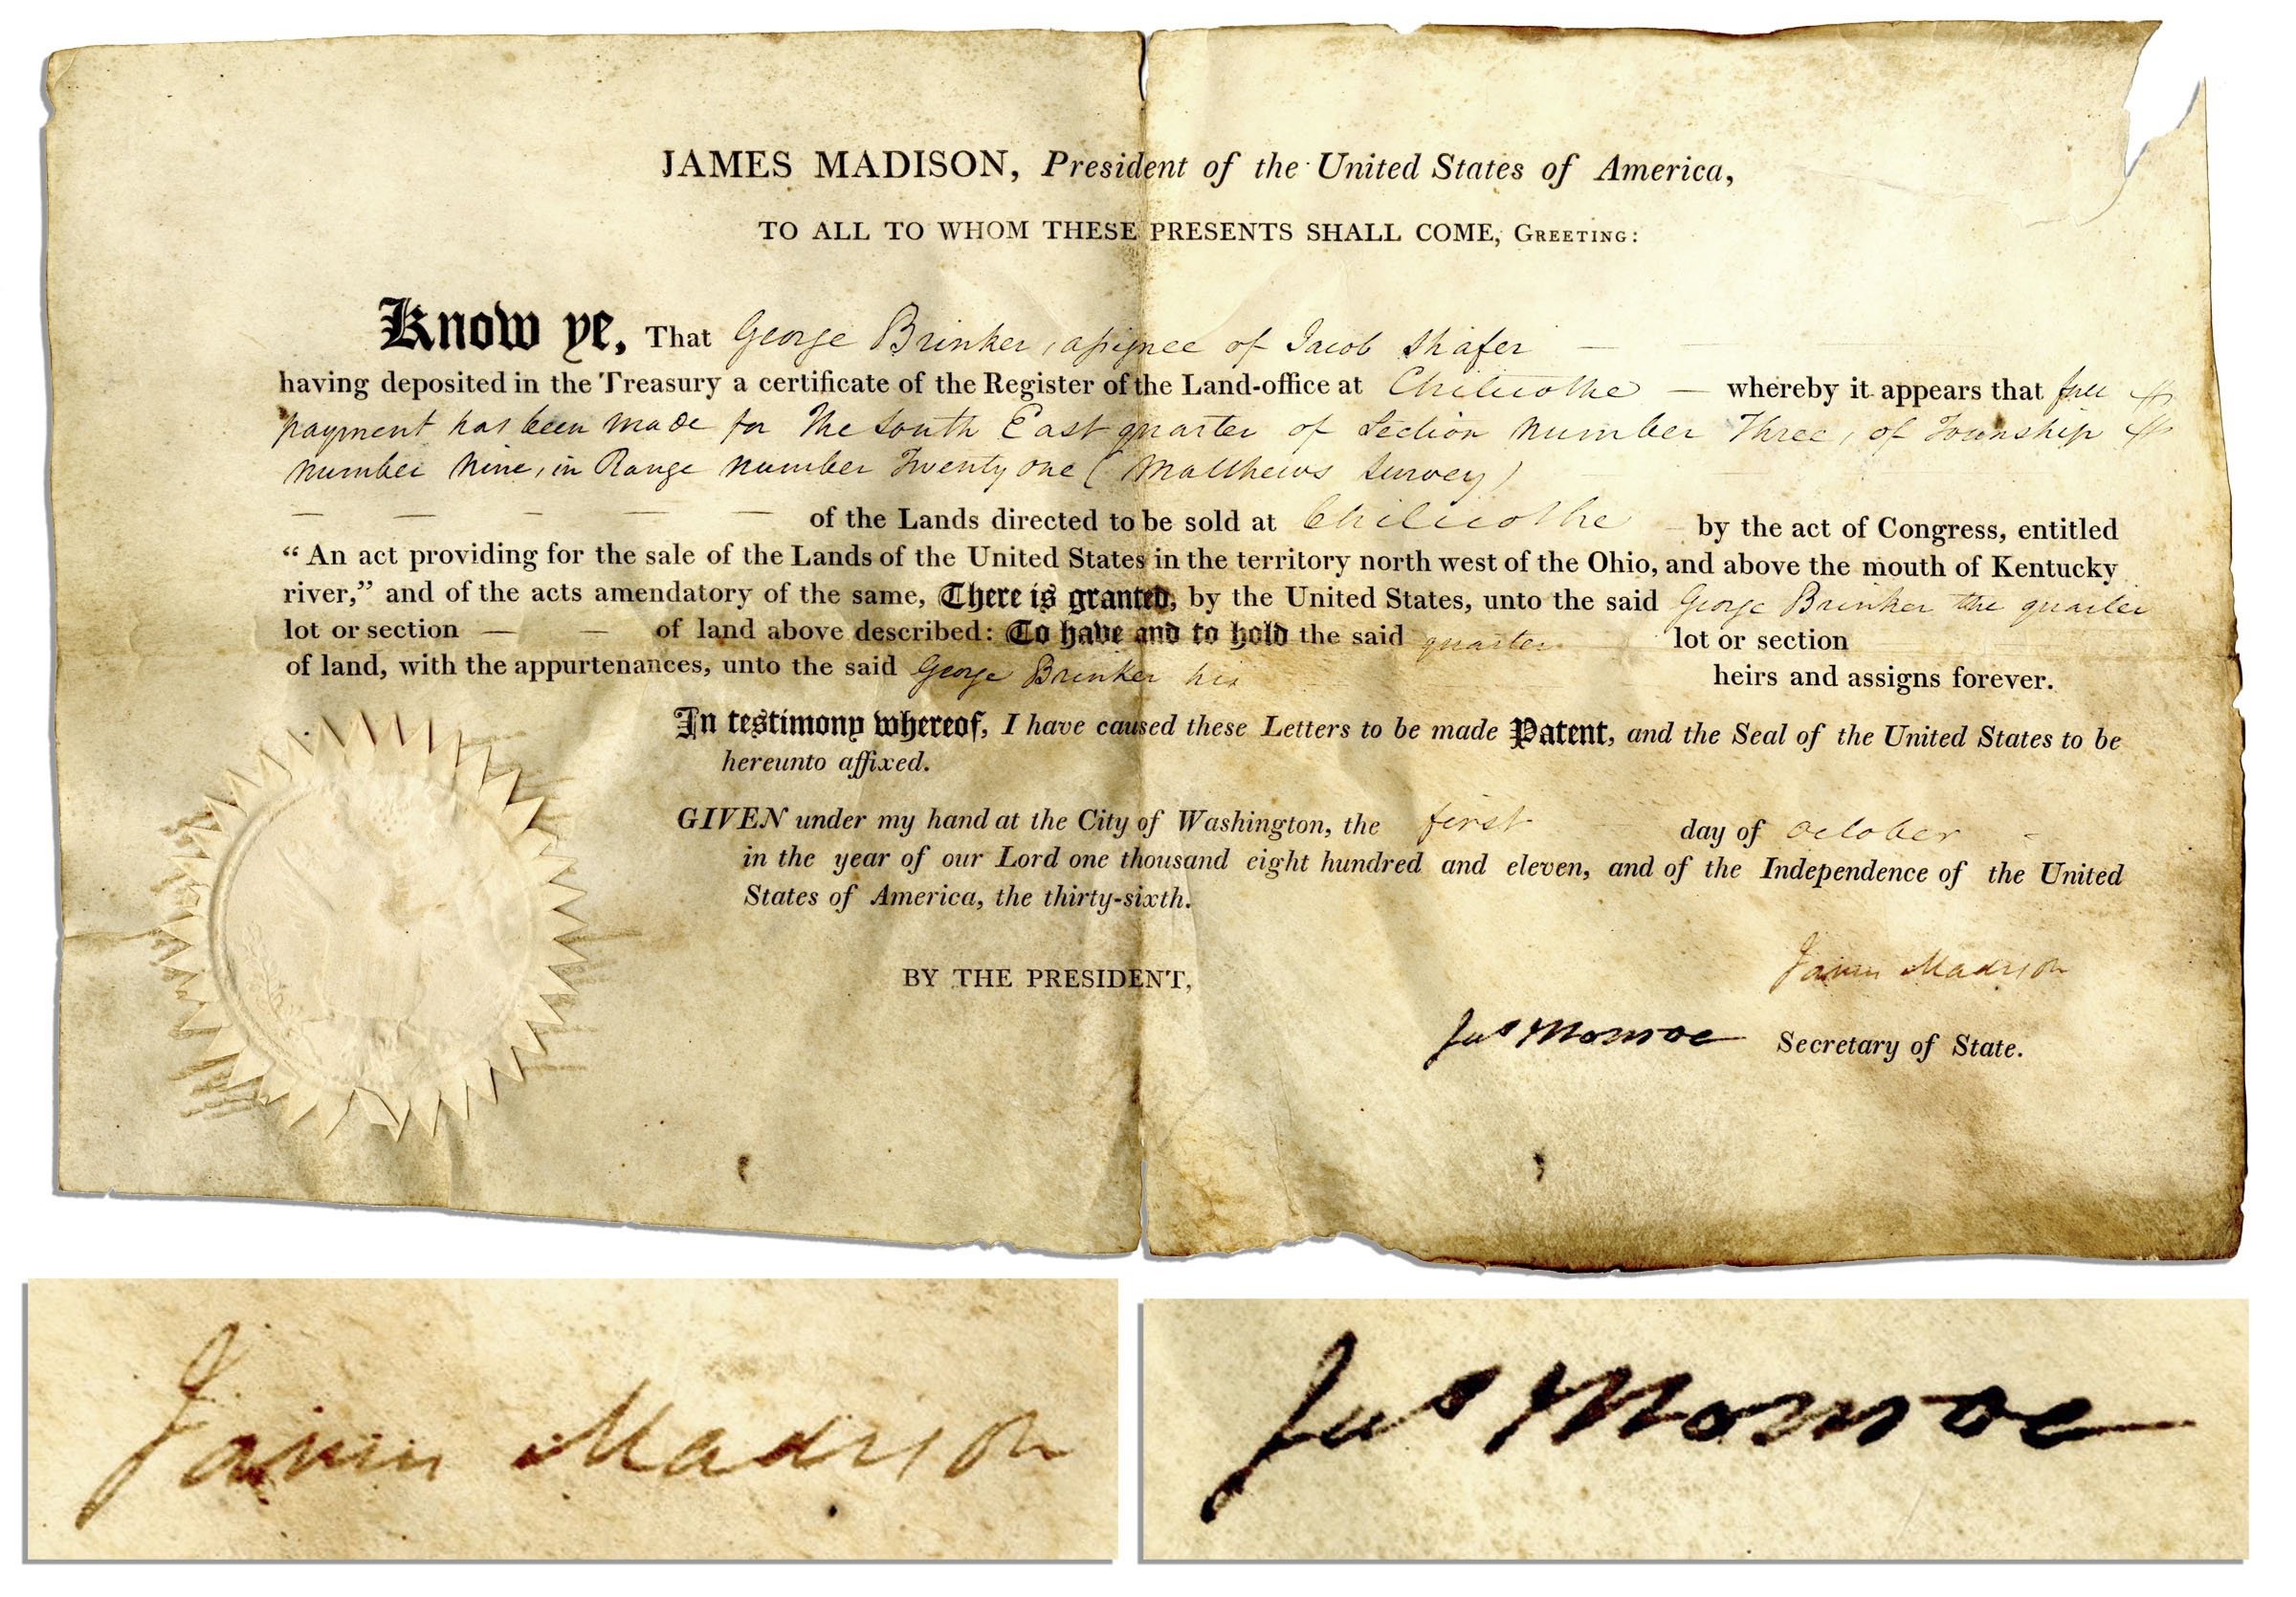 JAMES MADISON, President of the United States of America,
TO ALL TO WHOM THESE PRESENTS SHALL COME, GREETING:
Know ye, That George Brinker, assignee of Jacob Shafer
having deposited in the Treasury a certificate of the Register of the Land-office at Chilicothe — whereby it appears that full
payment has been made for the South East quarter of Section number Three, of Township
number nine, in Range number Twenty one (Matthews Survey)
— — — — — of the Lands directed to be sold at Chilicothe by the act of Congress, entitled
“An act providing for the sale of the Lands of the United States in the territory north west of the Ohio, and above the mouth of Kentucky
river,” and of the acts amendatory of the same, There is granted, by the United States, unto the said George Brinker the quarter
lot or section — — of land above described: To have and to hold the said quarter lot or section
of land, with the appurtenances, unto the said George Brinker his heirs and assigns forever.
In testimony whereof, I have caused these Letters to be made Patent, and the Seal of the United States to be
hereunto affixed.
GIVEN under my hand at the City of Washington, the first day of October
in the year of our Lord one thousand eight hundred and eleven, and of the Independence of the United
States of America, the thirty-sixth.
James Madison
BY THE PRESIDENT,
Jas Monroe Secretary of State.
James Madison
Jas Monroe